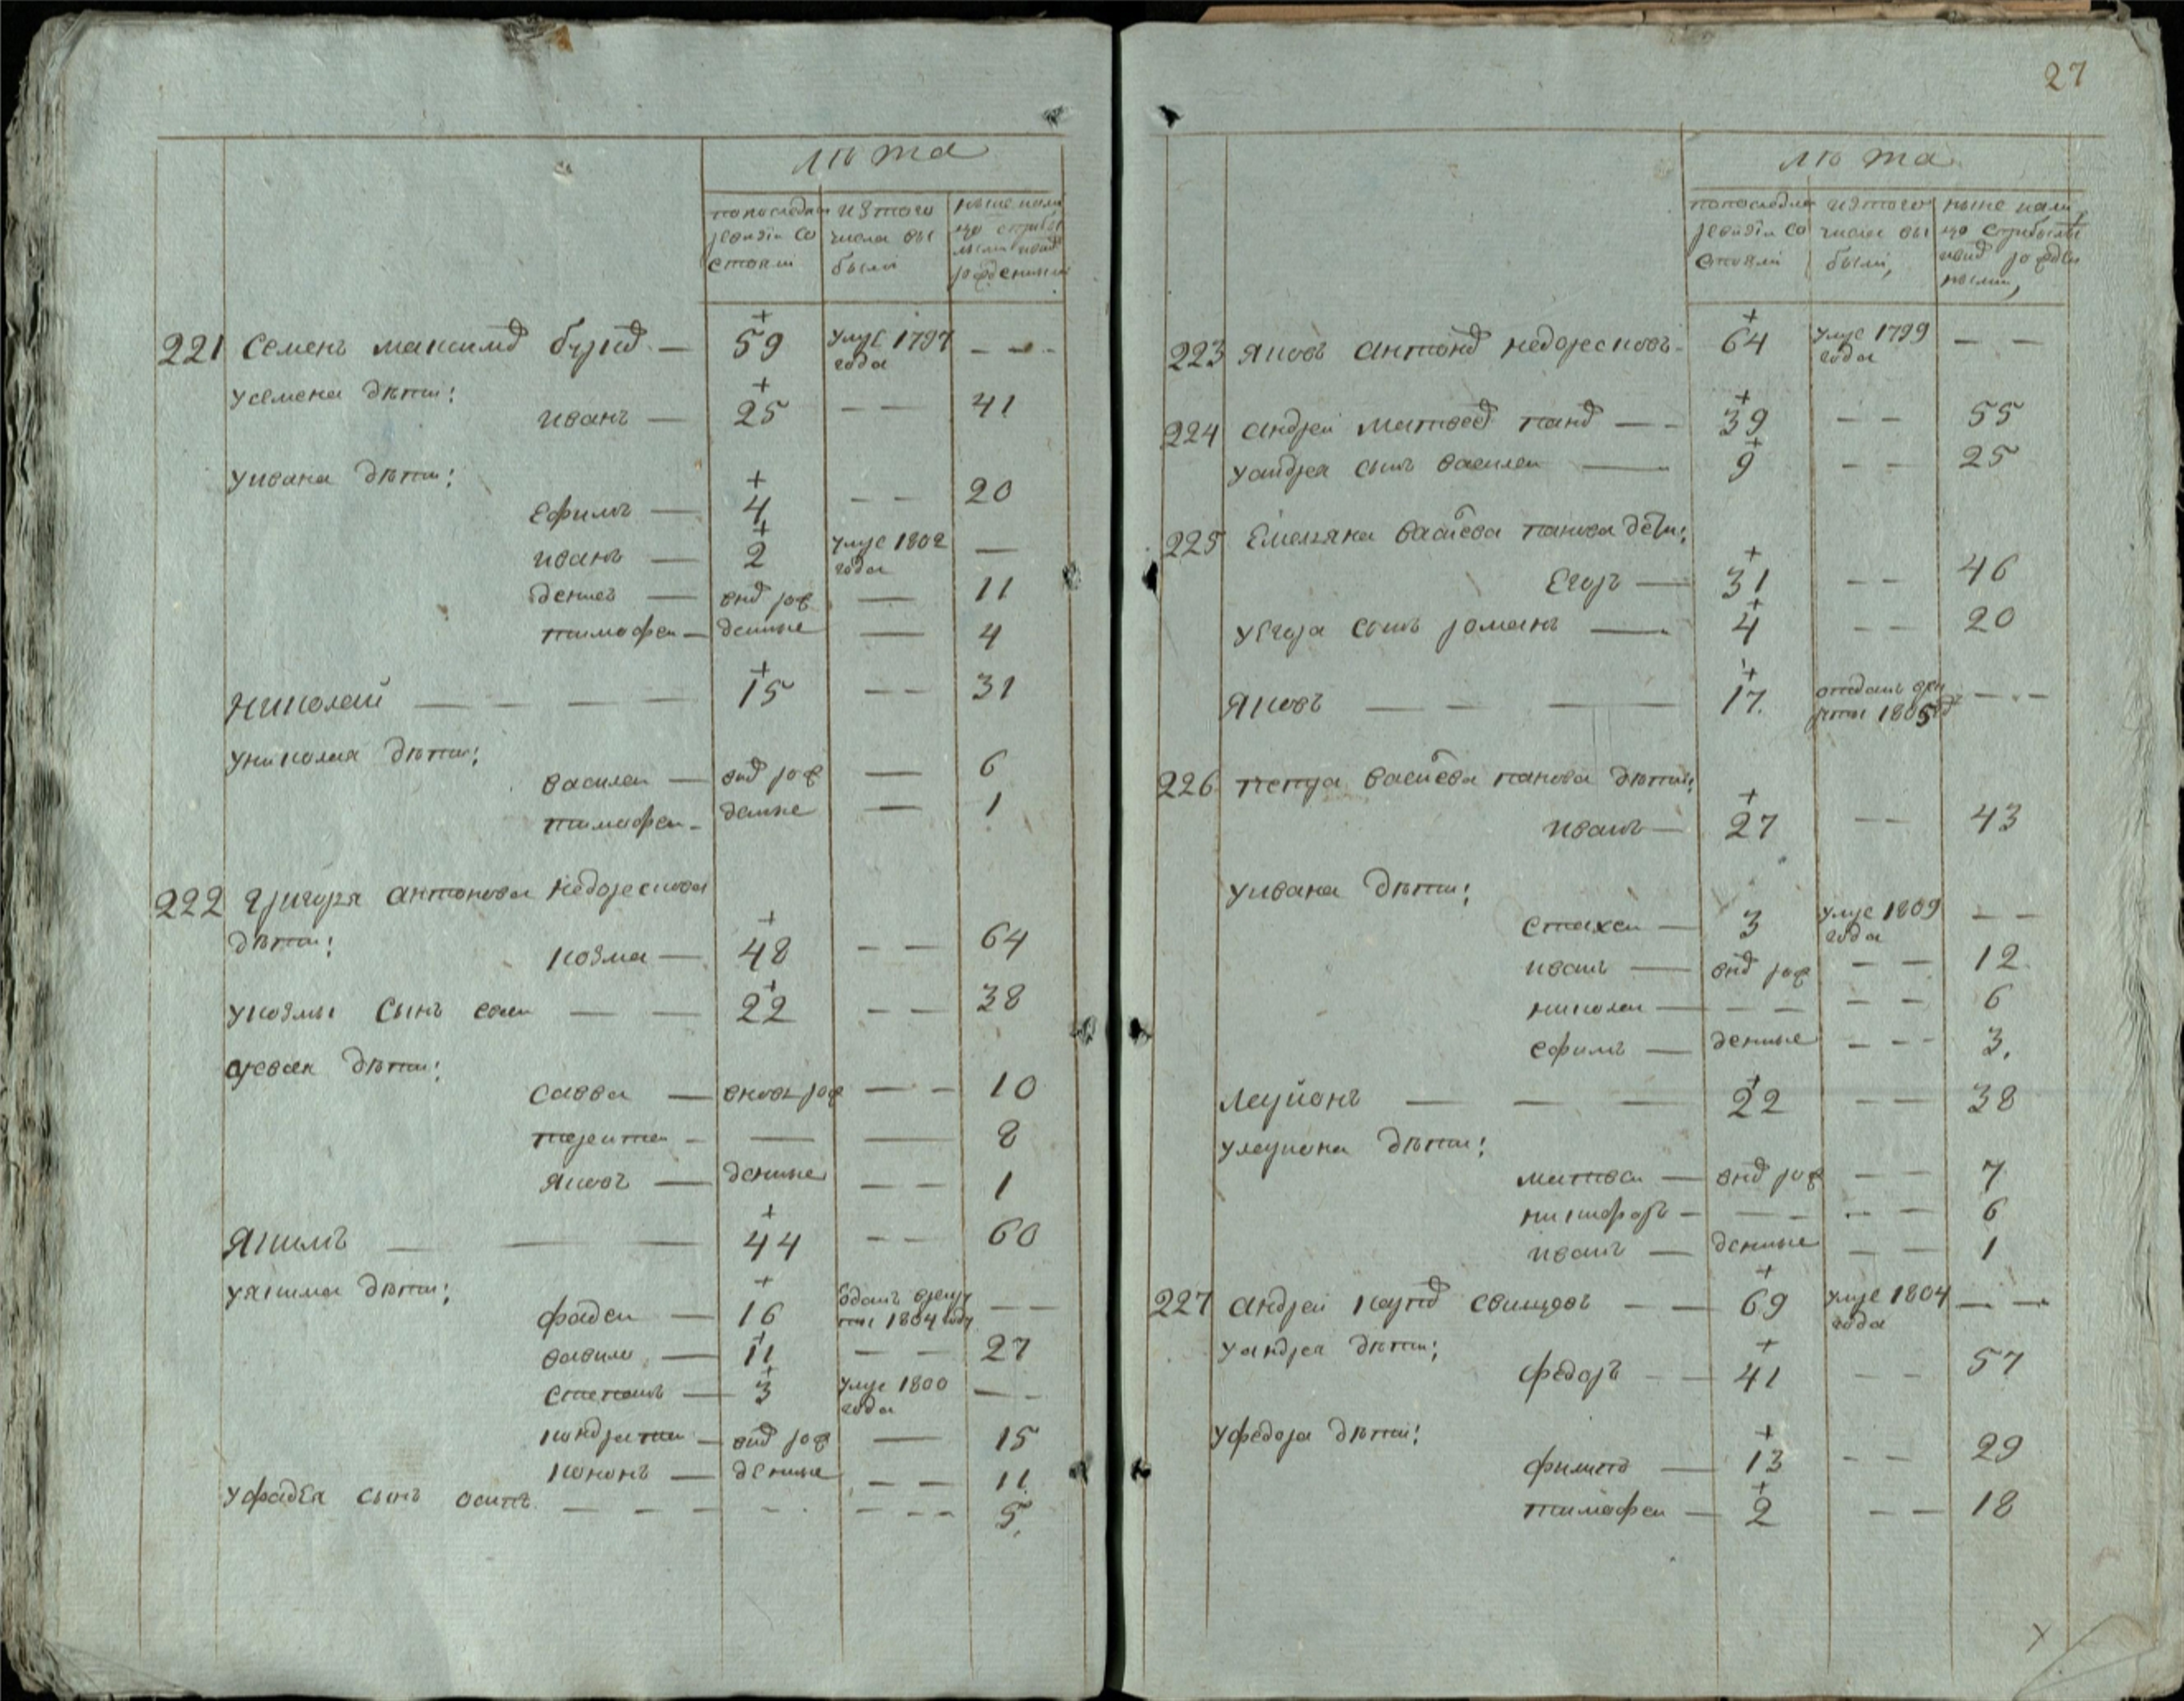 лѣта
попоследнеи ревизïи состояли
изтого числа выбыли
ныне налицо сприбылыми ивнов рожденными
221 Семенъ максимов бурцов — 59 умре 1797 года — — —
усемена дѣти:
иванъ — 25 — — 41
уивана дѣти:
ефимъ — 4 — — 20
иванъ — 2 умре 1802 года —
денисъ — внов рож — 11
тимофеи — денные — 4
Николай — — — — 15 — — 31
униколая дѣти:
василеи — внов рож — 6
тимофеи — денные — 1
222 Григорья антонова недорескова
дѣти:
козма — 48 — — 64
укозмы сынъ — — 22 — — 38
дѣти:
савва — вновь рож — — 10
терентеи — — — 8
яковъ — денные — — 1
Якимъ — — — 44 — — 60
уякима дѣти:
фадеи — 16 оданъ врекруты 1804 году — —
вавило — 11 — — 27
степанъ — 3 умре 1800 года — —
кондратеи — внов рож — 15
кононъ — денные — — 11
уфадея сынъ осипъ — — — — — — — 5
27
лѣта
попоследнеи ревизïи состояли
изтого числа выбыли,
ныне налицо сприбылыми ивнов рожденными,
223 яковъ антонов недоресковъ — 64 умре 1799 года — —
224 андреи матвеев панов — — 39 — — 55
уандрея сынъ василеи — 9 — — 25
225 Емельяна васильева панова дети:
Егоръ — 31 — — 46
уЕгора сынъ романъ — 4 — — 20
Яковъ — — — 17. отданъ врекруты 1805 — — —
226 петра васильева панова дѣти:
иванъ — 27 — — 43
уивана дѣти:
стахеи — 3 умре 1809 года — —
иванъ — внов рож — — 12
николаи — — — — — 6
ефимъ — денные — — — 3.
Ларионъ — — — 22 — — 38
улариона дѣти:
матвеи — внов рож — — 7
никифоръ — — — — — 6
иванъ — денные — — 1
227 андреи карпов свинцовъ — — 69 умре 1804 года — —
уандрея дѣти:
федоръ — — 41 — — 57
уфедора дѣти:
филипъ — 13 — — 29
тимофеи — 2 — — 18